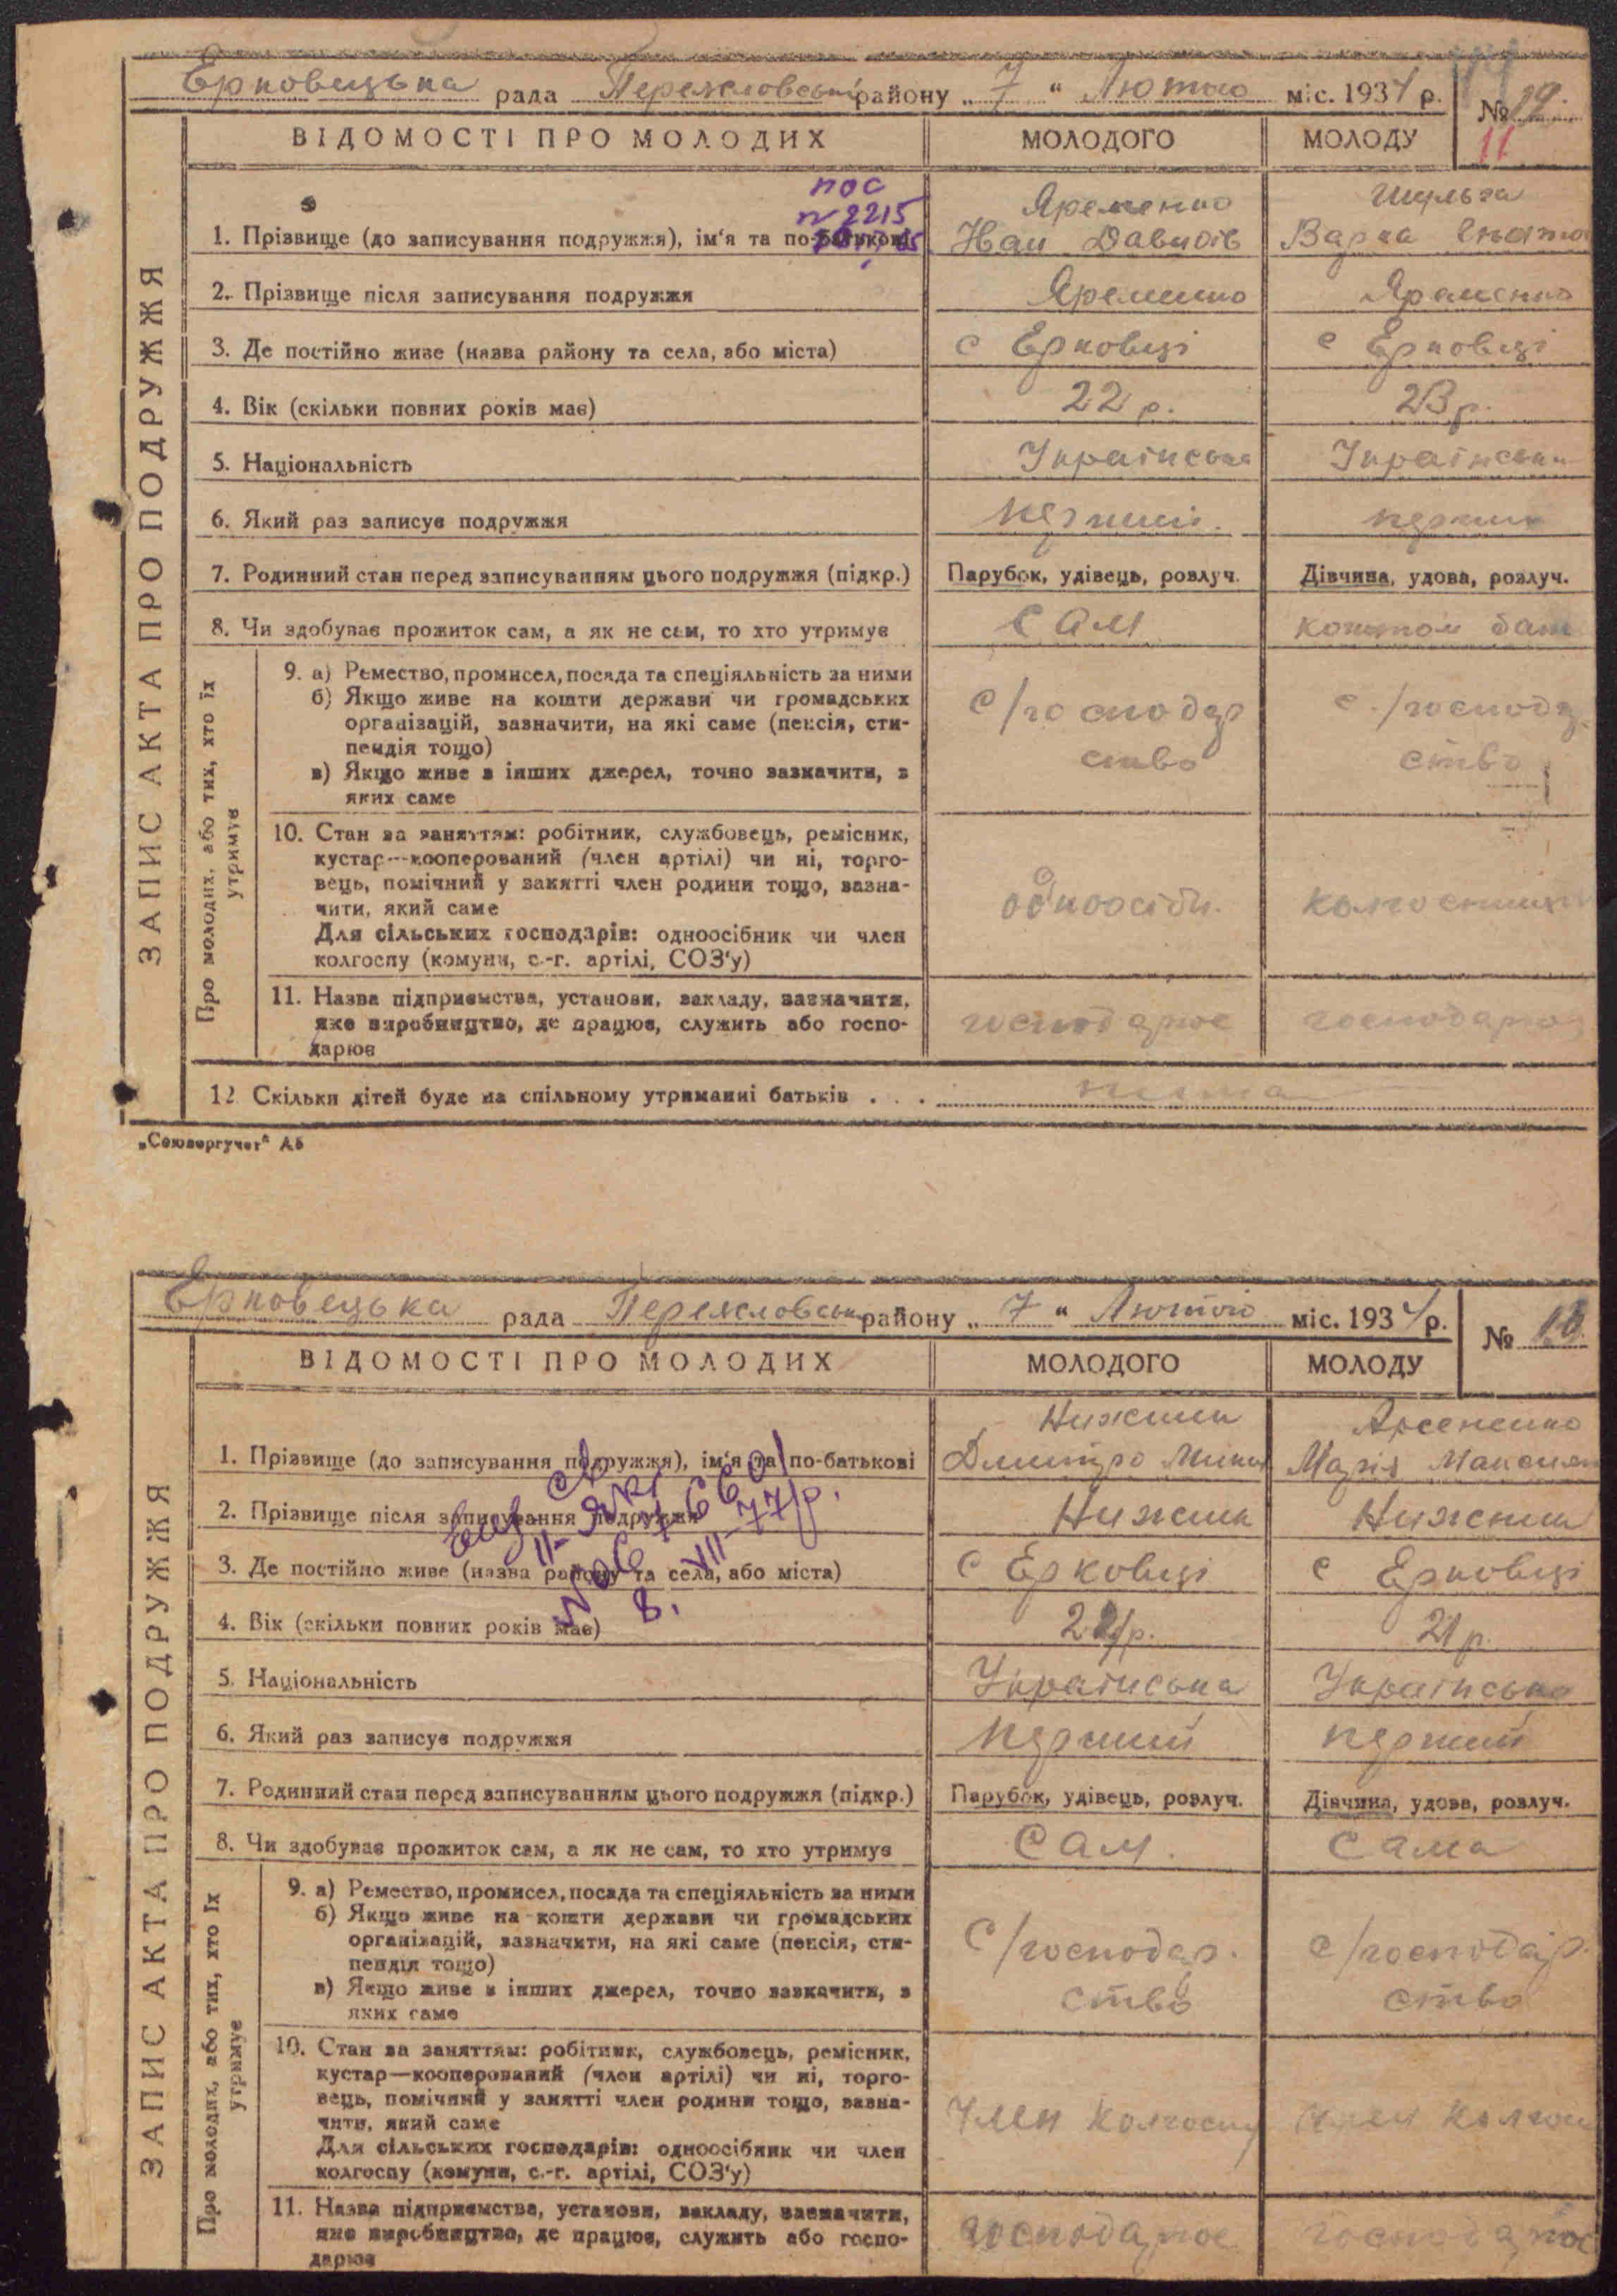 Ерковецька рада Переяславськ району „ 7 “ Лютого міс. 1934 р. № 19
11
ВІДОМОСТІ ПРО МОЛОДИХ МОЛОДОГО МОЛОДУ
ЗАПИС АКТА ПРО ПОДРУЖЖЯ
пос
№ 2215
1. Прізвище (до записування подружжя), ім‘я та по-батькові
Яременко
Іван Давидів
Шульга
Варка Гнатов
2. Прізвище після записування подружжя Яременко Яременко
3. Де постійно живе (назва району та села, або міста) с Ерковці с Ерковці
4. Вік (скільки повних років має) 22 р. 23 р.
5. Національність Українська Українська
6. Який раз записує подружжя перший перший
7. Родинний стан перед записуванням цього подружжя (підкр.) Парубок, удівець, розлуч. Дівчина, удова, розлуч.
8. Чи здобуває прожиток сам, а як не сам, то хто утримує сам коштом бат
Про молодих, або тих, хто їх утримує
9. а) Ремество, промисел, посада та спеціяльність за ними
б) Якщо живе на кошти держави чи громадських
організацій, зазначити, на які саме (пенсія, сти-
пендія тощо)
в) Якщо живе з інших джерел, точно зазначити, з
яких саме
с/господар
ство
с./господ
ство
10. Стан за заняттям: робітник, службовець, ремісник,
кустар—кооперований (член артілі) чи ні, торго-
вець, помічний у занятті член родини тощо, зазна-
чити, який саме
Для сільських господарів: одноосібник чи член
колгоспу (комуни, с.-г. артілі, СОЗ‘у)
одноосібн.
11. Назва підприємства, установи, закладу, зазначити,
яке виробництво, де працює, служить або госпо-
дарює
господарює господарює
12. Скільки дітей буде на спільному утриманні батьків . . . нема
„Союзоргучет“ А5
Ерковецька рада Переяславськ району „ 7 “ Лютого міс. 1934 р. № 10
ВІДОМОСТІ ПРО МОЛОДИХ МОЛОДОГО МОЛОДУ
ЗАПИС АКТА ПРО ПОДРУЖЖЯ
1. Прізвище (до записування подружжя), ім‘я та по-батькові
Нижник
Дмитро Мики
Арсененко
Марія Максим
2. Прізвище після записування подружжя Нижник Нижник
3. Де постійно живе (назва району та села, або міста) с Ерковці с Ерковці
4. Вік (скільки повних років має) 21 р.
5. Національність Українська Українська
6. Який раз записує подружжя перший перший
7. Родинний стан перед записуванням цього подружжя (підкр.) Парубок, удівець, розлуч. Дівчина, удова, розлуч.
8. Чи здобуває прожиток сам, а як не сам, то хто утримує сам. сама
Про молодих, або тих, хто їх утримує
9. а) Ремество, промисел, посада та спеціяльність за ними
б) Якщо живе на кошти держави чи громадських
організацій, зазначити, на які саме (пенсія, сти-
пендія тощо)
в) Якщо живе з інших джерел, точно зазначити, з
яких саме
с/господар.
ство
с/господар.
ство
10. Стан за заняттям: робітник, службовець, ремісник,
кустар—кооперований (член артілі) чи ні, торго-
вець, помічний у занятті член родини тощо, зазна-
чити, який саме
Для сільських господарів: одноосібник чи член
колгоспу (комуни, с.-г. артілі, СОЗ‘у)
Член колгоспу член колгосп
11. Назва підприємства, установи, закладу, зазначити,
яке виробництво, де працює, служить або госпо-
дарює
господарює господарює